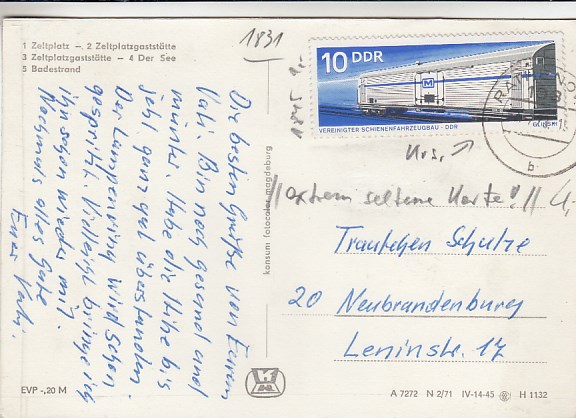 1 Zeltplatz – 2 Zeltplatzgaststätte
3 Zeltplatzgaststätte – 4 Der See
5 Badestrand
1831
10 DDR
M
VEREINIGTER SCHIENENFAHRZEUGBAU · DDR
b
Die besten Grüße von Eurem
Vati. Bin noch gesund und
munter. Habe die Hitze bis
jetzt ganz gut überstanden.
Der Lungenring wird schon
gespritzt. Vielleicht bringe ich
ihn sogar wieder mit.
Nochmals alles Gute
Euer Vati.
konsum fotocolor magdeburg
// extrem seltene Karte! //
Trautchen Schulze
20 Neubrandenburg
Leninstr. 17
EVP -,20 M
K
A 7272 N 2/71 IV-14-45 H 1132